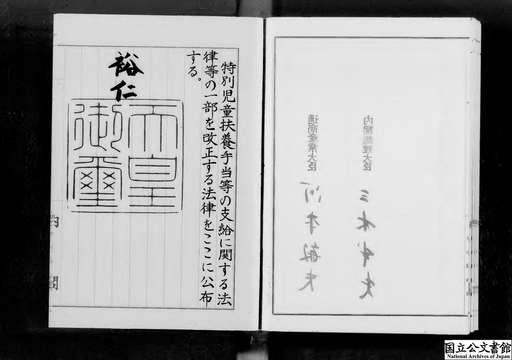 内閣総理大臣 三木武夫
通商産業大臣 河本敏夫
特別児童扶養手当等の支給に関する法
律等の一部を改正する法律をここに公布
する。
裕仁
天皇
御璽
内閣
国立公文書館
National Archives of Japan